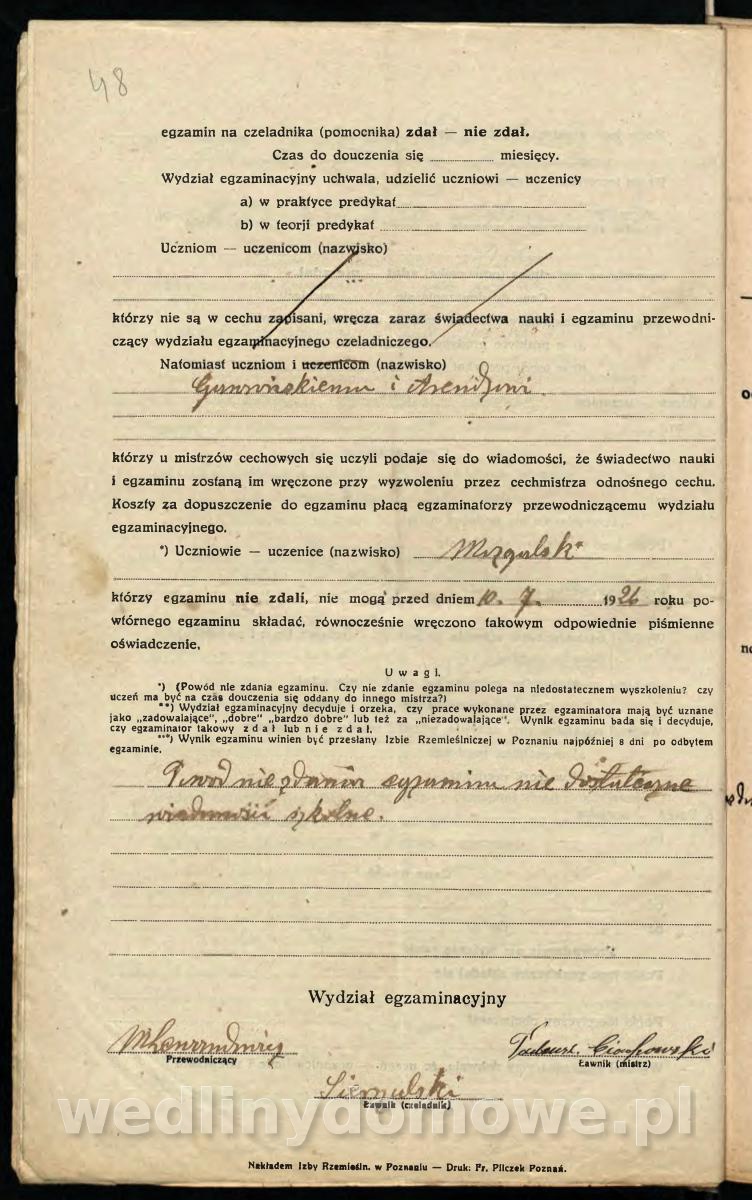 48
egzamin na czeladnika (pomocnika) zdał — nie zdał.
Czas do douczenia się miesięcy.
Wydział egzaminacyjny uchwala, udzielić uczniowi — uczenicy
a) w praktyce predykat
b) w teorji predykat
Uczniom — uczenicom (nazwisko)
którzy nie są w cechu zapisani, wręcza zaraz świadectwa nauki i egzaminu przewodni-
czący wydziału egzaminacyjnego czeladniczego.
Natomiast uczniom i uczenicom (nazwisko)
i
którzy u mistrzów cechowych się uczyli podaje się do wiadomości, że świadectwo nauki
i egzaminu zostaną im wręczone przy wyzwoleniu przez cechmistrza odnośnego cechu.
Koszty za dopuszczenie do egzaminu płacą egzaminatorzy przewodniczącemu wydziału
egzaminacyjnego.
*) Uczniowie — uczenice (nazwisko)
którzy egzaminu nie zdali, nie mogą przed dniem 10. 7. 1926 roku po-
wtórnego egzaminu składać, równocześnie wręczono takowym odpowiednie piśmienne
oświadczenie.
Uwagi.
*) (Powód nie zdania egzaminu. Czy nie zdanie egzaminu polega na niedostatecznem wyszkoleniu? czy
uczeń ma być na czas douczenia się oddany do innego mistrza?)
**) Wydział egzaminacyjny decyduje i orzeka, czy prace wykonane przez egzaminatora mają być uznane
jako „zadowalające", „dobre" „bardzo dobre" lub też za „niezadowalające". Wynik egzaminu bada się i decyduje,
czy egzaminator takowy zdał lub nie zdał.
***) Wynik egzaminu winien być przesłany Izbie Rzemieślniczej w Poznaniu najpóźniej 8 dni po odbytem
egzaminie.
Powod nie zdania egzaminu nie dostateczne
wiadomości szkolne.
Wydział egzaminacyjny
Przewodniczący
Tadeusz Ciachowski
Ławnik (mistrz)
Ławnik (czeladnik)
wedlinydomowe.pl
Nakładem Izby Rzemieśln. w Poznaniu — Druk: Fr. Pilczek Poznań.